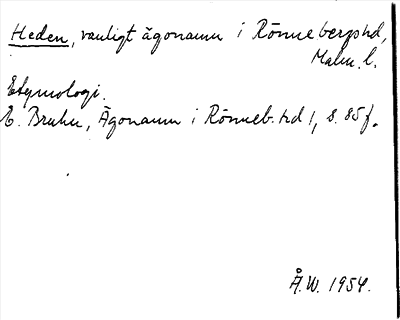 Heden, vanligt ägonamn i Rönnebergs hd,
Malm. l.
Etymologi.
E. Bruhn, Ägonamn i Rönneb. hd 1, s. 85 f.
Å.W. 1954.